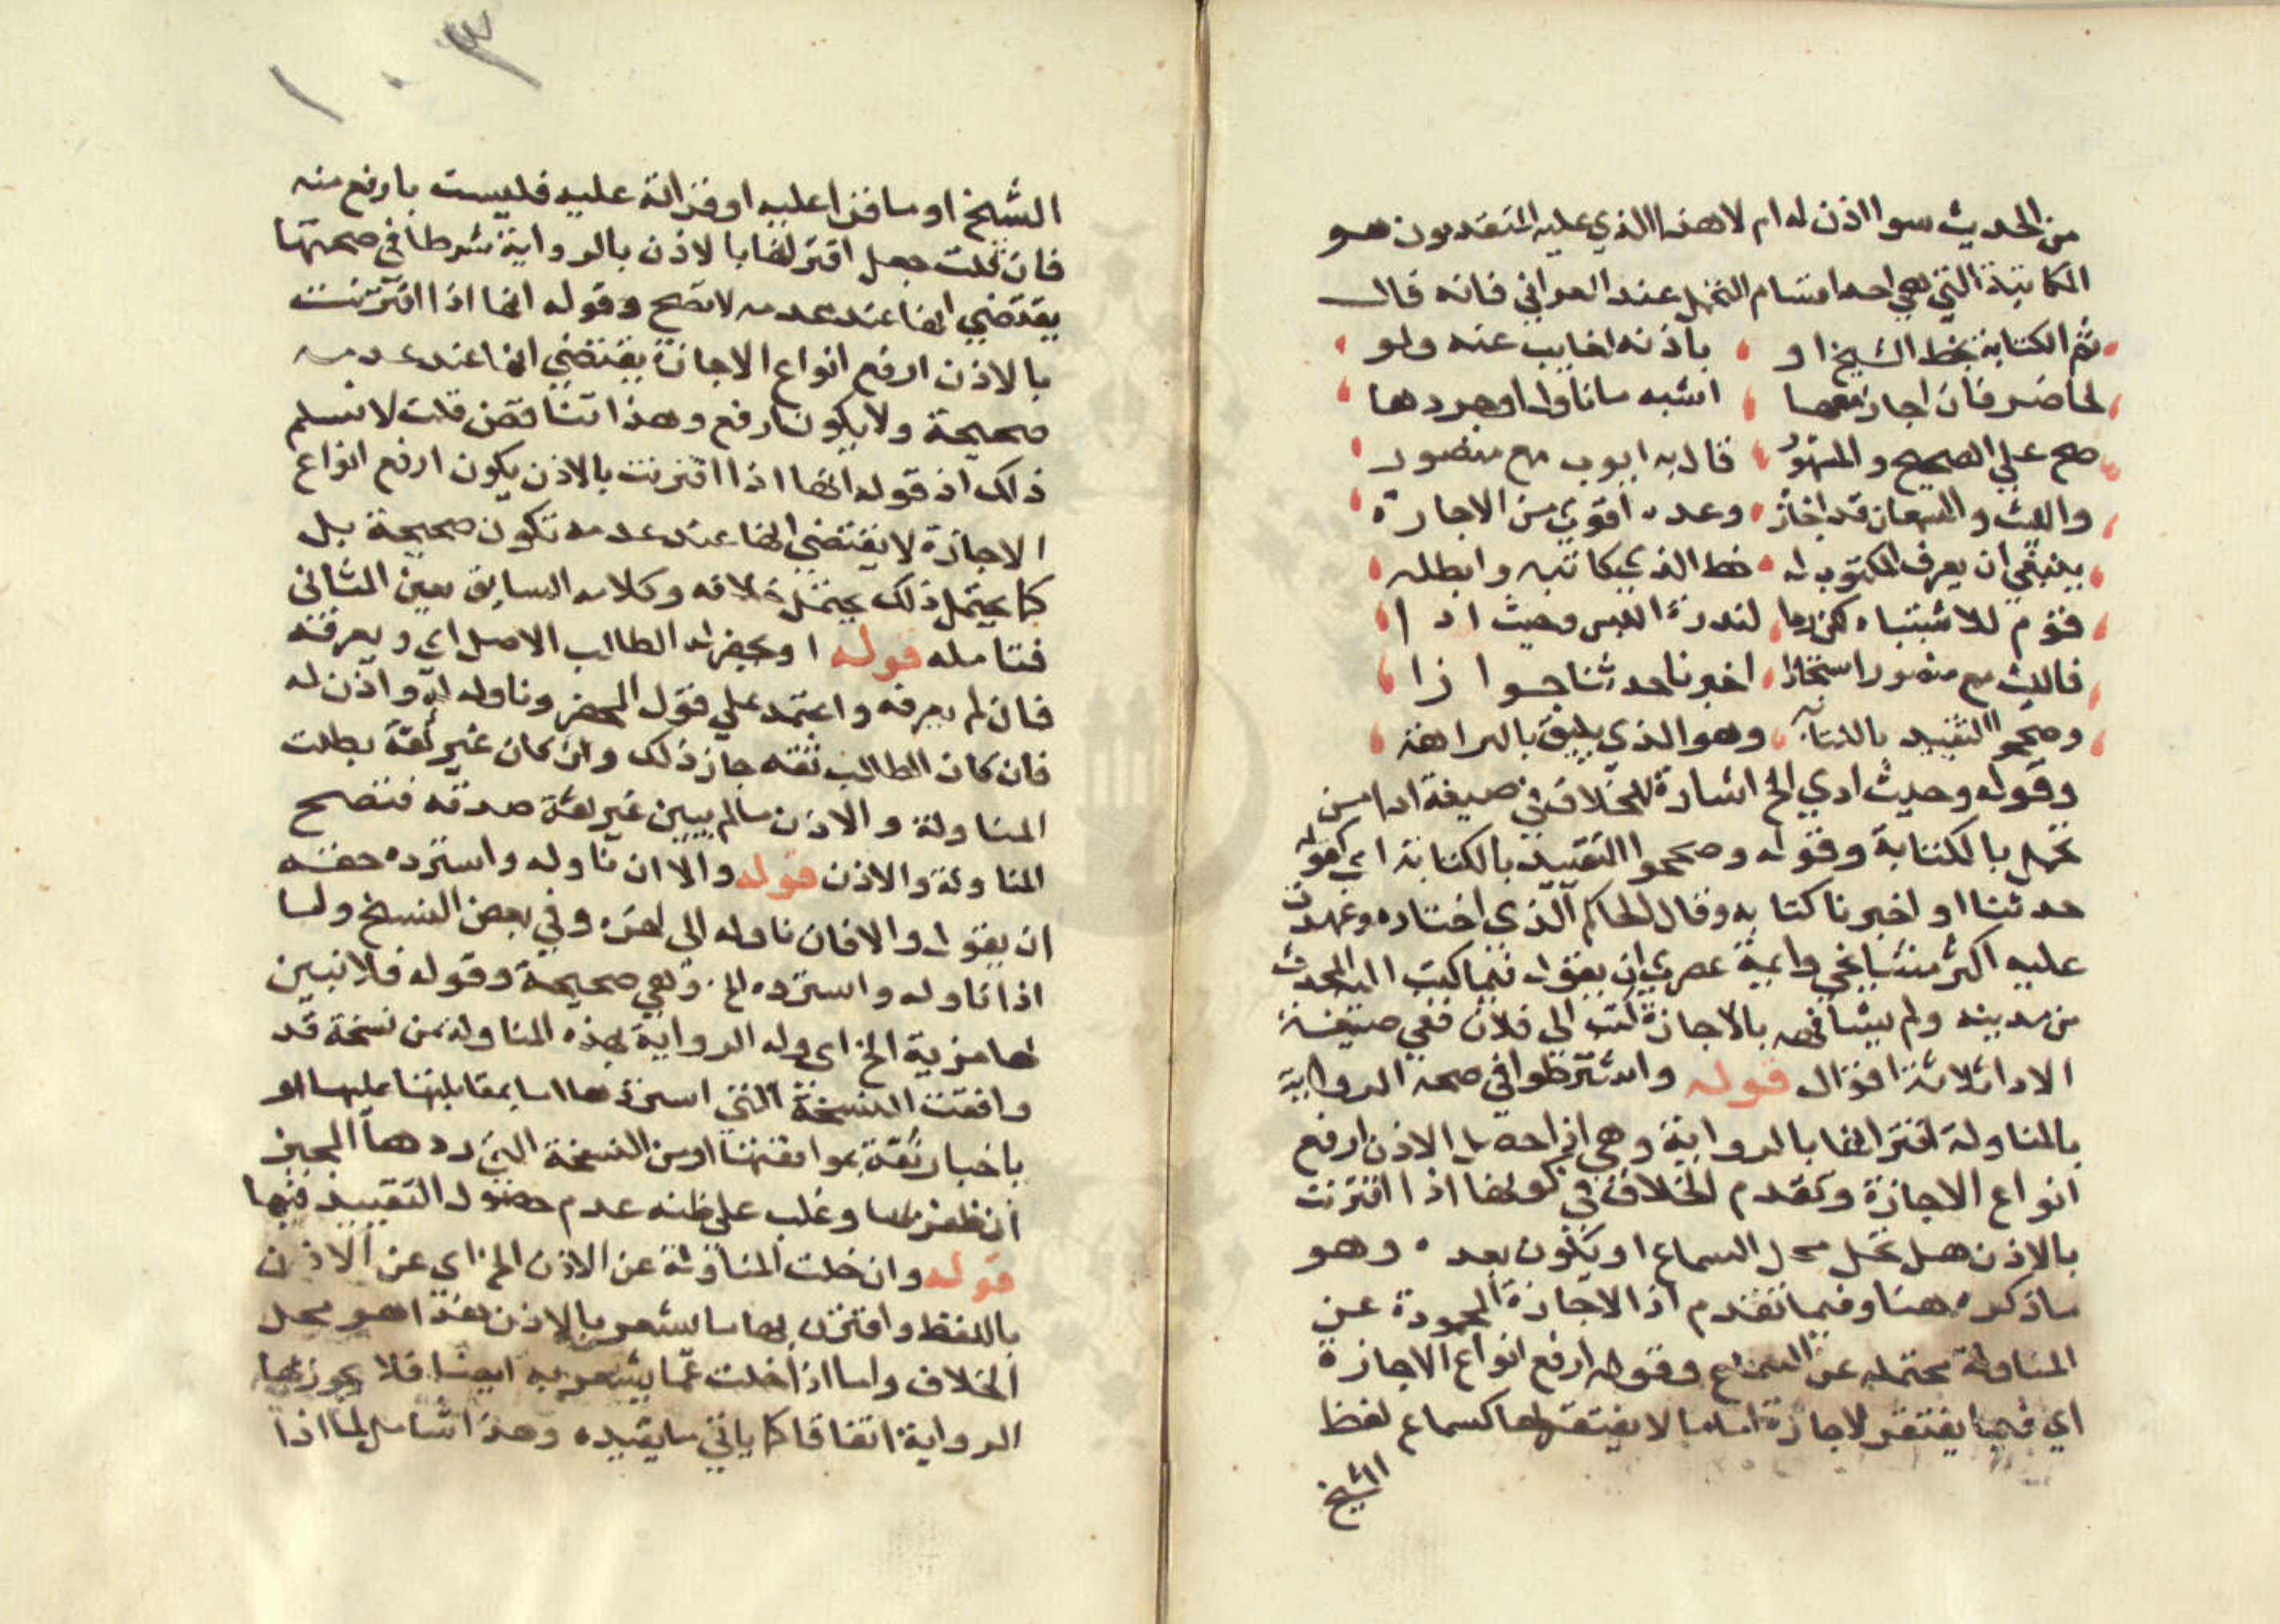 من الحديث سوا اذن له ام لا هذا الذي عليه المتقدمون هو
المكاتبة التي هي احد اقسام التحمل عند العراقي فانه قال
ثم الكتابة بخط الشيخ او باذنه لغايب عنه ولو
لحاضر فان اجاز معها اشبه ما ناول او جردها
صح علي الصحيح والمشهور قال به ايوب مع منصور
والليث والسمعان قد اجازه وعده اقوي من الاجازة
ينبغي ان يعرف المكتوب له خط الذي كاتبه وابطله
قوم للاشتباه لكن ردا لندرة اللبس وحيث ادا
فالليث مع منصور استجازا اخبرنا حدثنا جوازا
وصححوا التقييد بالكتابه وهو الذي يليق بالنزاهة
وقوله وحيث ادي الخ اشارة للخلاف في صيغة ادا من
تحمل بالكتابة وقوله وصححوا التقييد بالكتابة اي كقوله
حدثنا او اخبرنا كتابه وقال الحاكم الذي اختاره وعهدت
عليه اكثر مشايخي وايمة عصري ان يقول فيما كتب اليه المحدث
من مدينه ولم يشافهه بالاجازة كتب الي فلان ففي صيغة
الادا ثلاثة اقوال قوله واشترطوا في صحة الرواية
بالمناولة اقترانها بالرواية وهي اذا حصل الاذن ارفع
انواع الاجازة وتقدم الخلاف في كونها اذا اقترنت
بالاذن هل تحل محل السماع او يكون بعده وهو
ما ذكره هنا وفيما تقدم اذ الاجازة المجردة عن
المناولة محتمله عن السماع وقوله ارفع انواع الاجازة
اي فيما يفتقر لاجازة اما ما لا يفتقر لها كسماع لفظ
الشيخ
١٠٣
الشيخ او ما قرا عليه او قراته عليه فليست بارفع منه
فان قلت جعل اقترانها بالاذن بالرواية شرطا في صحتها
يقتضي انها عند عدمه لا تصح وقوله انها اذا اقترنت
بالاذن ارفع انواع الاجازة يقتضي انها عند عدمه
صحيحة ولا يكون ارفع وهذا تناقض قلت لا نسلم
ذلك اذ قوله انها اذا اقترنت بالاذن يكون ارفع انواع
الاجازة لا يقتضي انها عند عدمه تكون صحيحة بل
كما يحتمل ذلك يحتمل خلافه وكلامه السابق يعين الثاني
فتامله قوله او يحضر له الطالب الاصل اي ويعرفه
فان لم يعرفه واعتمد علي قول المحضر وناوله له واذن له
فان كان الطالب ثقه جاز ذلك وان كان غير ثقة بطلت
المناولة والاذن ما لم يبين غير ثقة صدقه فتصح
المناولة والاذن قوله والا ان ناوله واسترده حقه
ان يقول والا فان ناوله الي اخره وفي بعض النسخ ولما
اذا ناوله واسترده الخ وهي صحيحة وقوله فلا تبين
لها مزية الخ اي وله الرواية بهذه المناولة من نسخة قد
وافقت النسخة التي استردها اما بمقابلتها عليها او
باخبار ثقة بموافقتها او من النسخة التي ردها المجيز
ان ظفر بها وغلب علي ظنه عدم حصول التقييد فيها
قوله وان خلت المناولة عن الاذن الخ اي عن الاذن
باللفظ واقترن بها ما يشعر بالاذن فهذا هو محل
الخلاف واما اذا خلت عما يشعر به ايضا فلا يجوز بها
الرواية اتفاقا كما ياتي ما يقيده وهذا شامل لما اذا